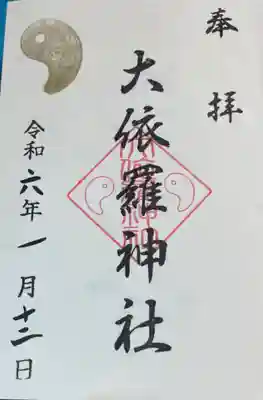 奉拝
大依羅神社
令和六年一月十二日